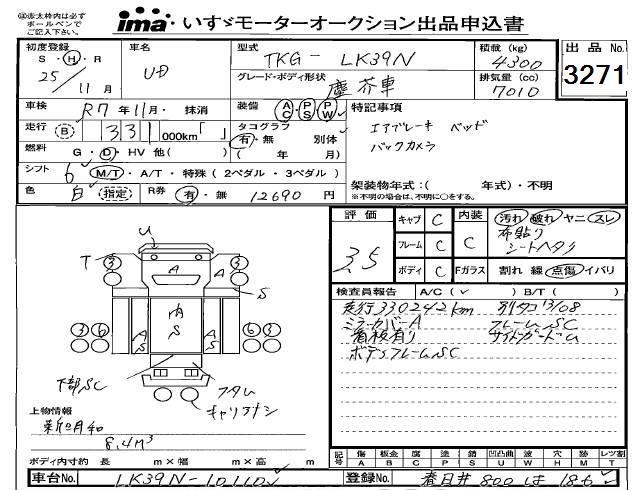 ㊟赤太枠内は必ず
ボールペンで
ご記入下さい。
ima・いすゞモーターオークション出品申込書
初度登録 S・H・R 25/11月
車名 UD
型式 TKG- LK39N
グレード・ボディ形状 塵芥車
積載(kg) 4300
排気量(cc) 7010
出品No. 3271
車検 R7年11月・抹消
装備 AC・PS・PW
特記事項
走行 B 331,000km「 」
タコグラフ 有・無 別体
( 年 月)
エアブレーキ ベッド
バックカメラ
燃料 G・D・HV 他( )
シフト 6 M/T・A/T・特殊(2ペダル・3ペダル)
架装物年式:( 年式)・不明
※不明の場合は、不明に○をする。
色 白 指定 R券 有・無 12690円
評価 3.5
キャブ C
フレーム C
ボディ C
内装 C
汚れ 破れ ヤニ スレ
布貼り
シートヘタリ
Fガラス 割れ 線 点傷 イバリ
検査員報告 A/C(✓) B/T( )
走行330242km
ミラーカバーA フレームSC
看板有り サイドガードU
ボディフレームSC
U
T 3 3
A
S
A
S
A
S
A
S
3 6 6 3
下部SC
フタム
上物情報
新明和
8.4m³
ボディ内寸約 長 m×幅 m×高 m
記号 傷A 板金B 腐C 塗P 錆S 凹凸曲U 波W 穴H 跡M レツ割T
車台No. LK39N-
登録No. 春日井800は186